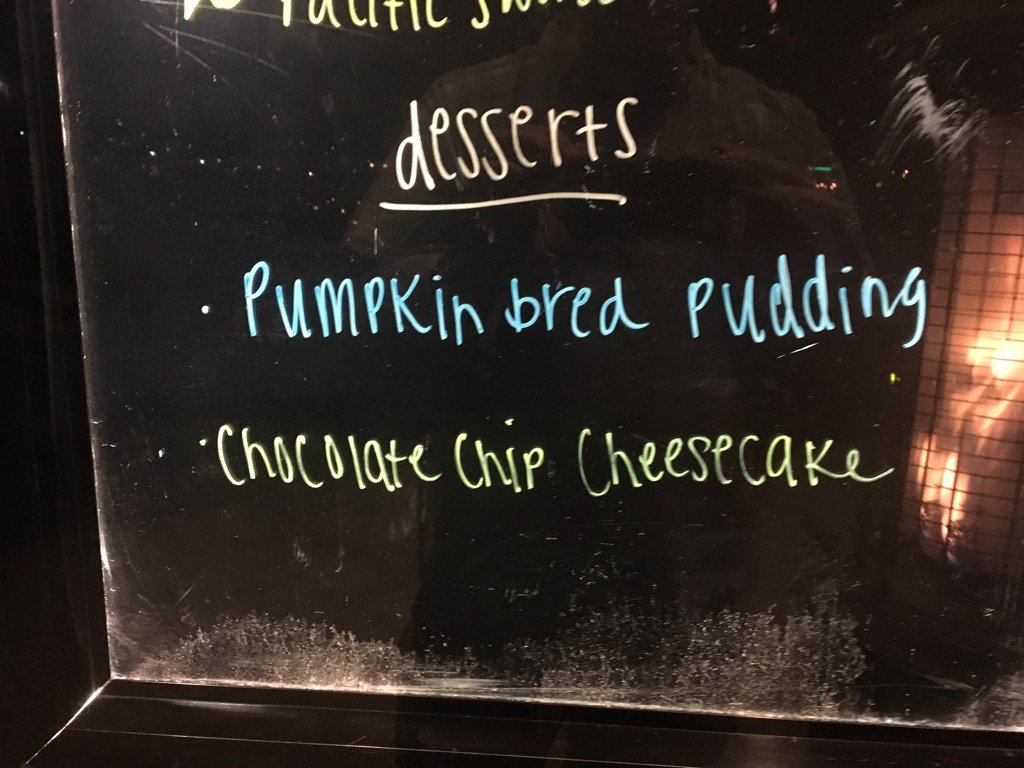 Pacific
desserts
· Pumpkin bred pudding
· Chocolate Chip Cheesecake